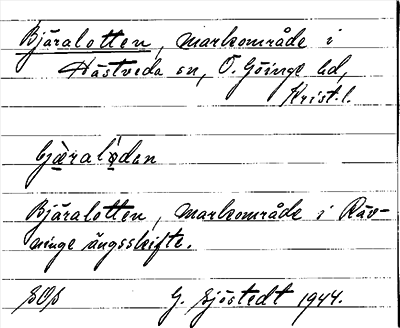 Bjäralotten, markområde i
Hästveda sn, Ö. Göinge hd,
Krist. l.
bjæ̀ralo̩dən
Bjäralotten, markområde i Röv-
ninge ängsskifte.
G. Sjöstedt 1944.